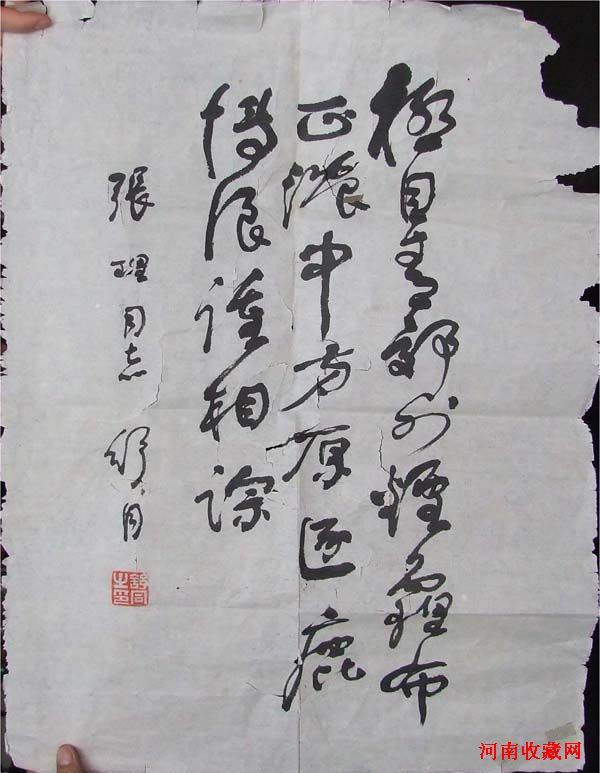 極目青郊外煙霾布
正濃中方原逐鹿
博浪踵相踪
張理同志 舒同
舒同之印
河南收藏网